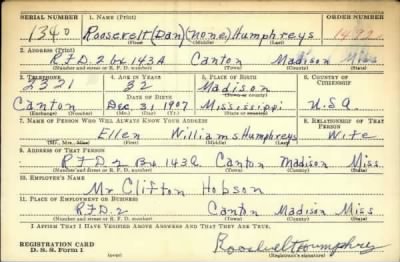 SERIAL NUMBER 1. NAME (Print) ORDER NUMBER
1340 Roosevelt (Dan) (none) Humphreys
(First) (Middle) (Last)
2. ADDRESS (Print)
R.F.D. 2 Bx 143A Canton Madison Miss
(Number and street or R. F. D. number) (Town) (County) (State)
3. TELEPHONE 4. AGE IN YEARS 5. PLACE OF BIRTH 6. COUNTRY OF CITIZENSHIP
2321 32 Madison
DATE OF BIRTH (Town or county)
Canton Dec. 31 1907 Mississippi U.S.A.
(Exchange) (Number) (Mo.) (Day) (Yr.) (State or country)
7. NAME OF PERSON WHO WILL ALWAYS KNOW YOUR ADDRESS 8. RELATIONSHIP OF THAT PERSON
Ellen Williams Humphreys Wife
(Mr., Mrs., Miss) (First) (Middle) (Last)
9. ADDRESS OF THAT PERSON
R.F.D. 2 Bx 143A Canton Madison Miss.
(Number and street or R. F. D. number) (Town) (County) (State)
10. EMPLOYER'S NAME
Mr Clifton Hobson
11. PLACE OF EMPLOYMENT OR BUSINESS
RFD. 2 Canton Madison Miss
(Number and street or R. F. D. number) (Town) (County) (State)
I AFFIRM THAT I HAVE VERIFIED ABOVE ANSWERS AND THAT THEY ARE TRUE.
REGISTRATION CARD
D. S. S. Form 1 (over) (Registrant's signature)